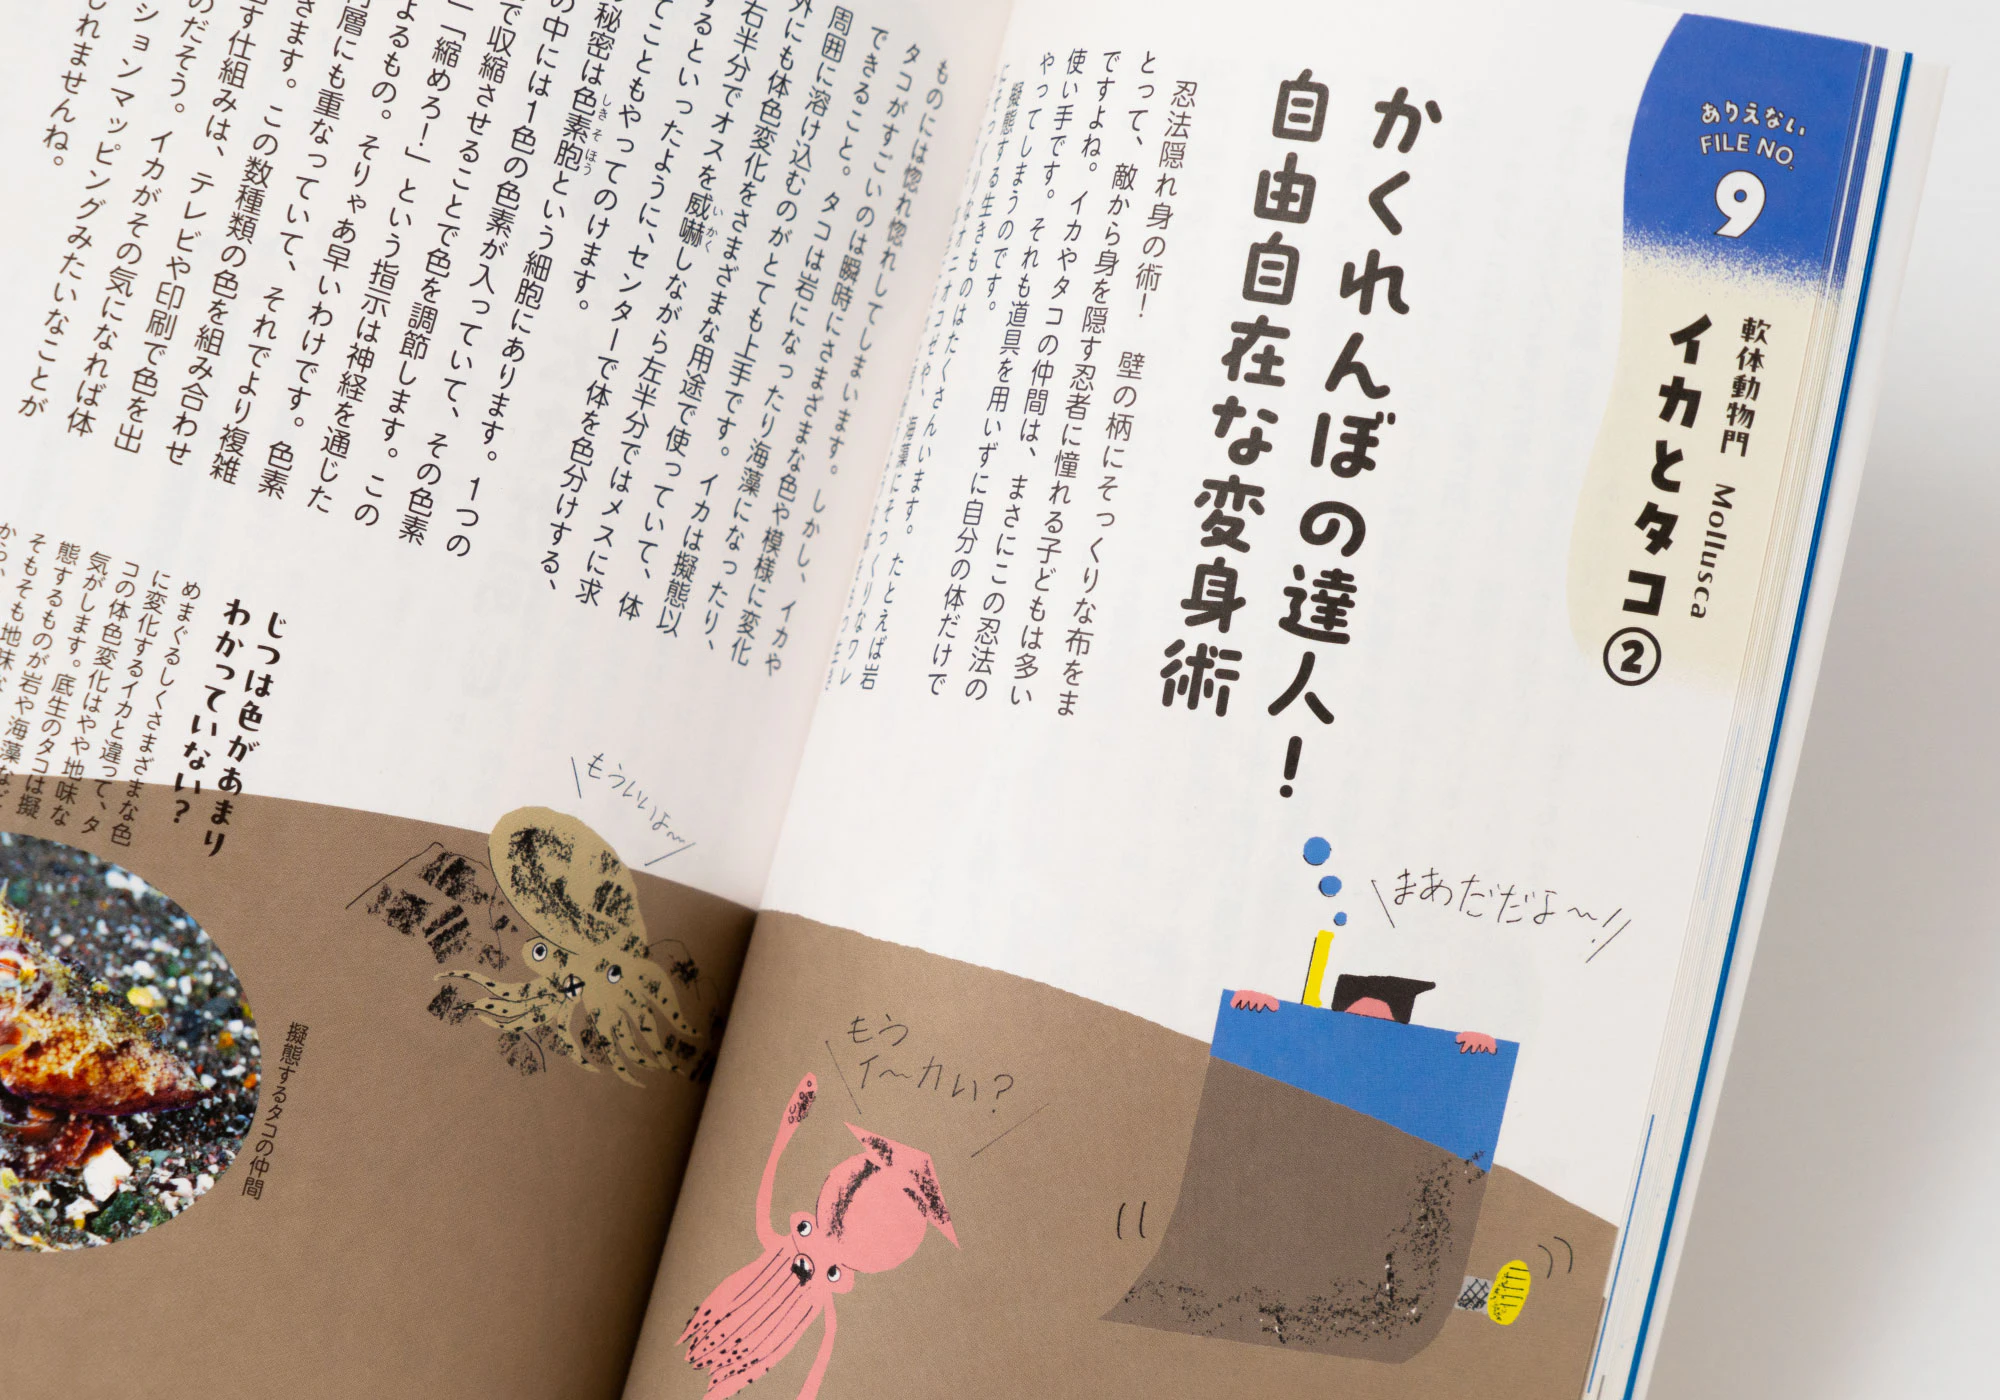 ありえない
FILE NO.
9
軟体動物門 Mollusca
イカとタコ②
かくれんぼの達人！
自由自在な変身術
忍法隠れ身の術！　壁の柄にそっくりな布をま
とって、敵から身を隠す忍者に憧れる子どもは多い
ですよね。イカやタコの仲間は、まさにこの忍法の
使い手です。それも道具を用いずに自分の体だけで
やってしまうのです。
擬態する生きものはたくさんいます。たとえば岩
ものには惚れ惚れしてしまいます。しかし、イカや
タコがすごいのは瞬時にさまざまな色や模様に変化
できること。タコは岩になったり海藻になったり、
周囲に溶け込むのがとても上手です。イカは擬態以
外にも体色変化をさまざまな用途で使っていて、体
右半分でオスを威嚇しながら左半分ではメスに求
いかく
するといったように、センターで体を色分けする、
てこともやってのけます。
秘密は色素胞という細胞にあります。1つの
しきそほう
の中には1色の色素が入っていて、その色素
で収縮させることで色を調節します。この
「縮めろ！」という指示は神経を通じた
よるもの。そりゃあ早いわけです。色素
層にも重なっていて、それでより複雑
さます。この数種類の色を組み合わせ
す仕組みは、テレビや印刷で色を出
のだそう。イカがその気になれば体
ションマッピングみたいなことが
しれませんね。
じつは色があまり
わかっていない？
めまぐるしくさまざまな色
に変化するイカと違って、タ
コの体色変化はやや地味な
気がします。底生のタコは擬
態するものが岩や海藻など
そもそも地味な
から、
擬態するタコの仲間
まあだだよ〜！
もうい〜カい？
もういいよ〜